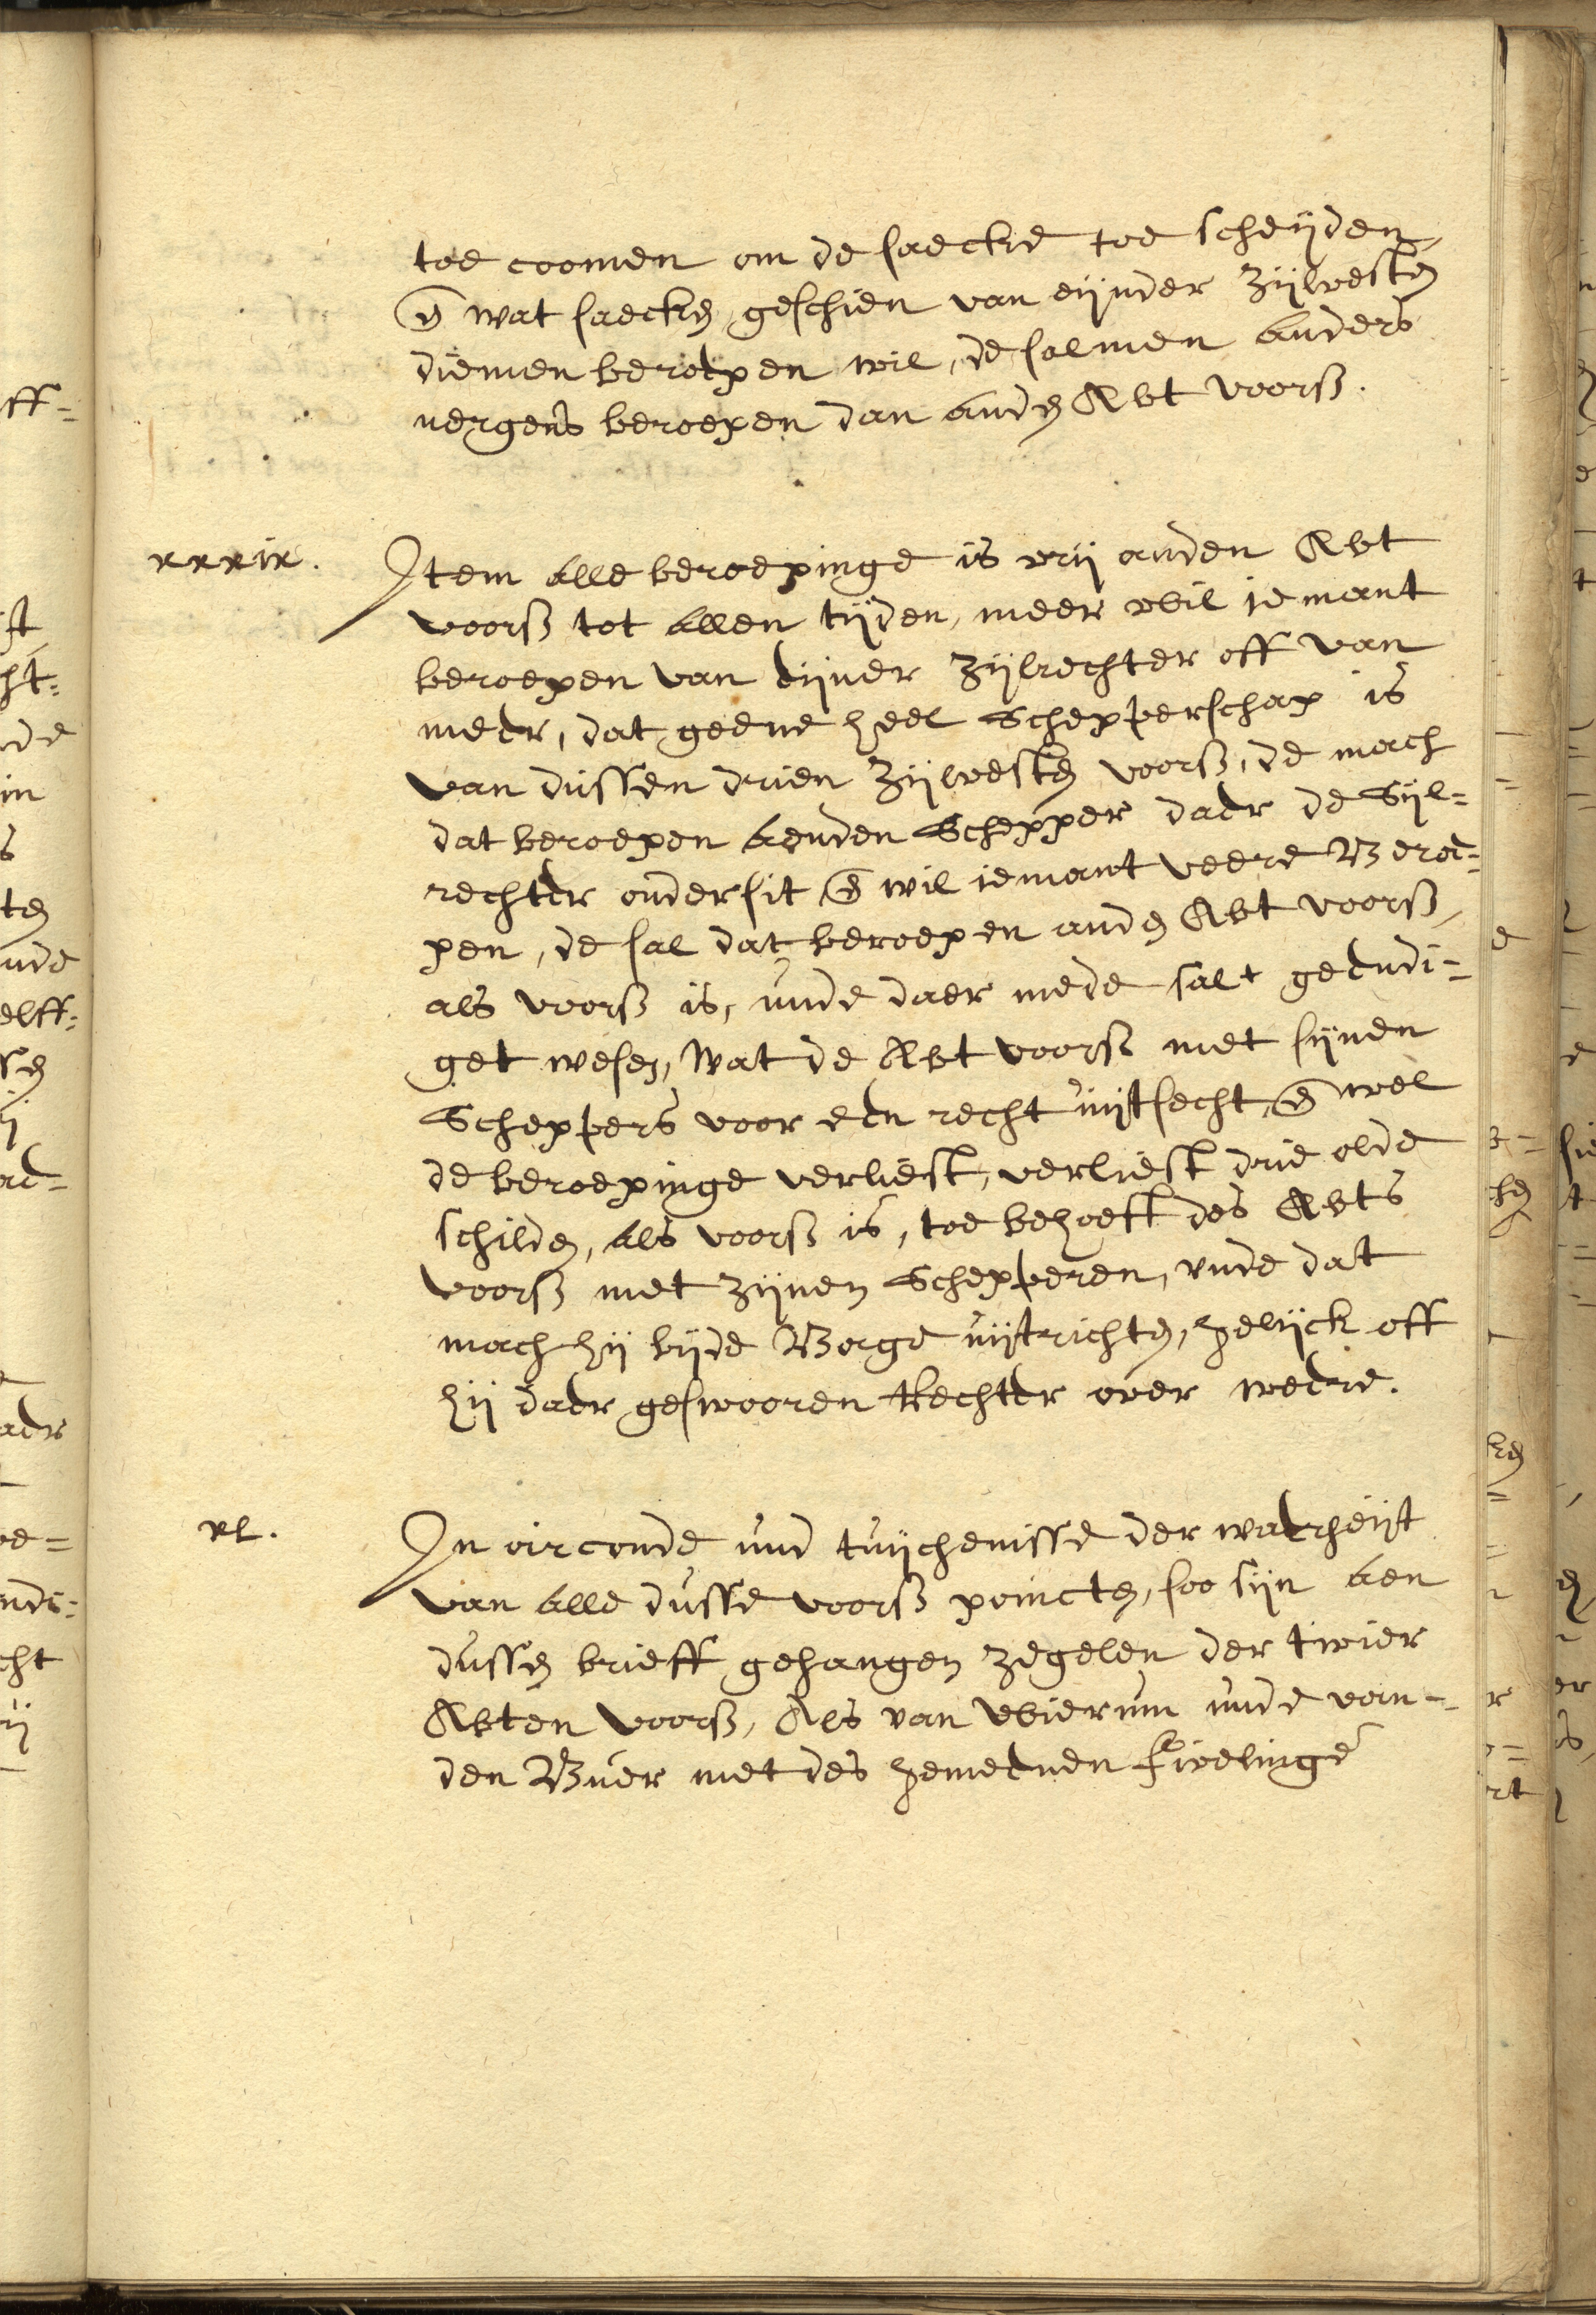 toe coomen om de saecke toe scheijden,
en̄ wat saecken geschien van eijnder Zijlvesten
diemen beroepen wil, de salmen anders
nergens beroepen dan anden Abt voorß.
xxxix.
Item alle beroepinge is vrij anden Abt
voorß tot allen tijden, meer wil iemant
beroepen van eijner Zijlrechter off van
meer, dat geene heel Schepperschap is
van dussen drien Zijlvesten voorß, de mach
dat beroepen aenden Schepper daer de Sijl=
rechter onder sit en̄ wil iemant veere Beroe=
pen, de sal dat beroepen anden Abt voorß,
als voorß is, unde daer mede salt geendi=
get wesen, Wat de Abt voorß met sijnen
Scheppers voor een recht uijtsecht, en̄ wel
de beroepinge verliest, verliest drie olde
schilden, als voorß is, toe behoeff des Abts
voorß met zijnen Schepperen, unde dat
mach hij bijde Borge uijtrichten, gelijck off
hij daer geswooren Rechter over weere.
xl.
In oirconde und tuijchenisse der waerheijt
van alle dusse voorß poincten, soo sijn aen
dussen brieff gehangen zegelen der twier
Abten voorß, Als van Wierum unde van=
den Buer met des gemeenen Fivelinge